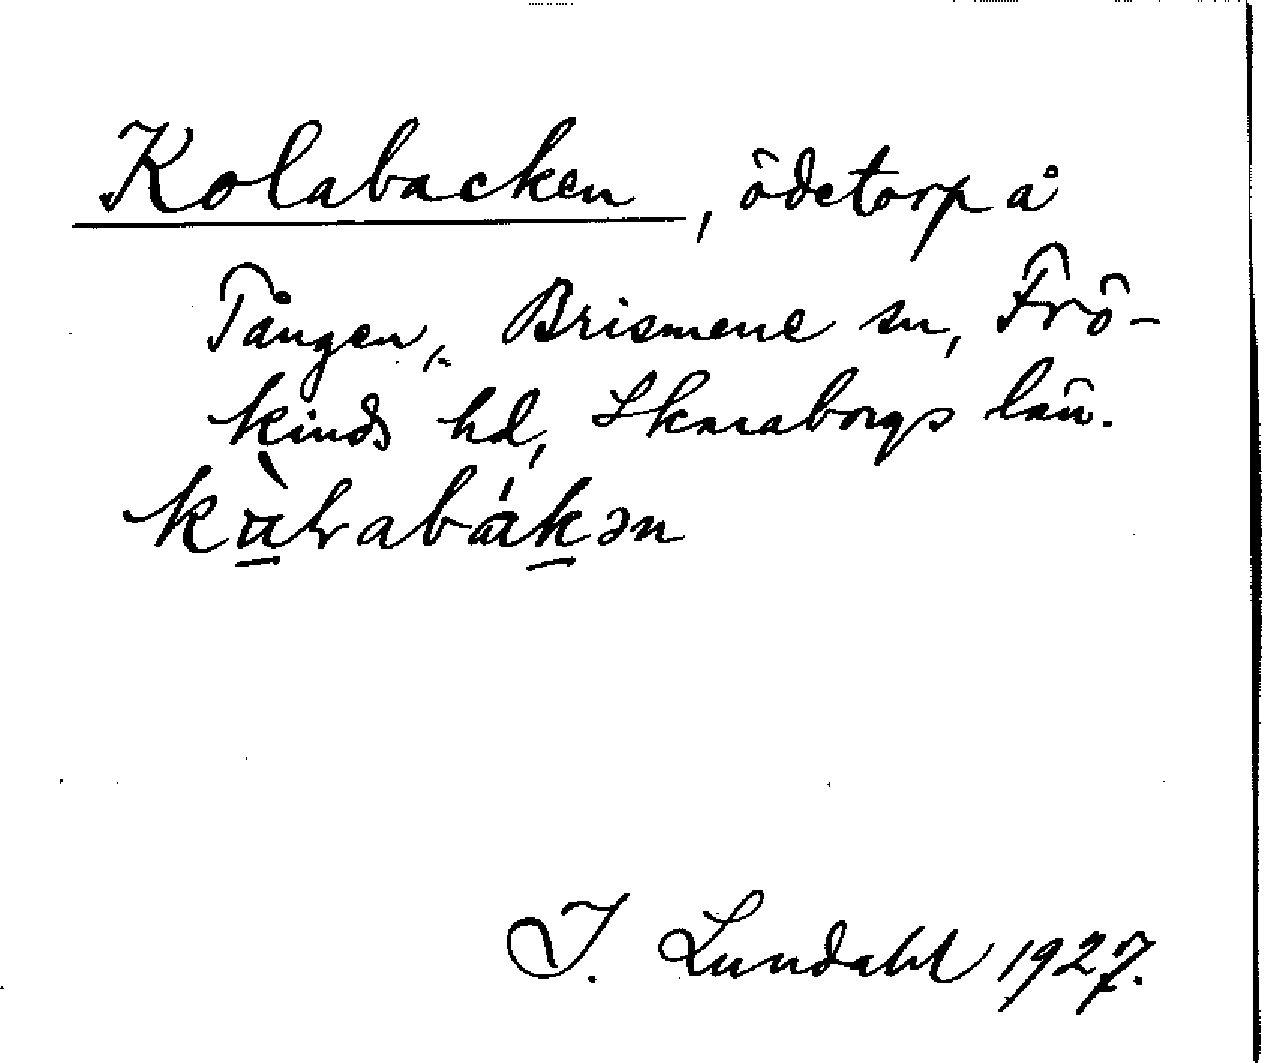 Kolabacken, ödetorp å
Tången, Brismene sn, Frö-
kinds hd, Skaraborgs län.
I. Lundahl 1927.